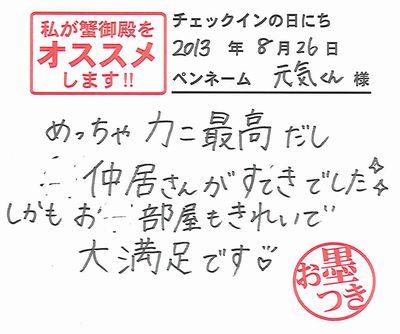 私が蟹御殿を
オススメ
します!!
チェックインの日にち
2013 年 8月26日
ペンネーム 元気くん 様
めっちゃカニ最高だし
仲居さんがすてきでした
しかもお部屋もきれいで
大満足です♡
お墨つき